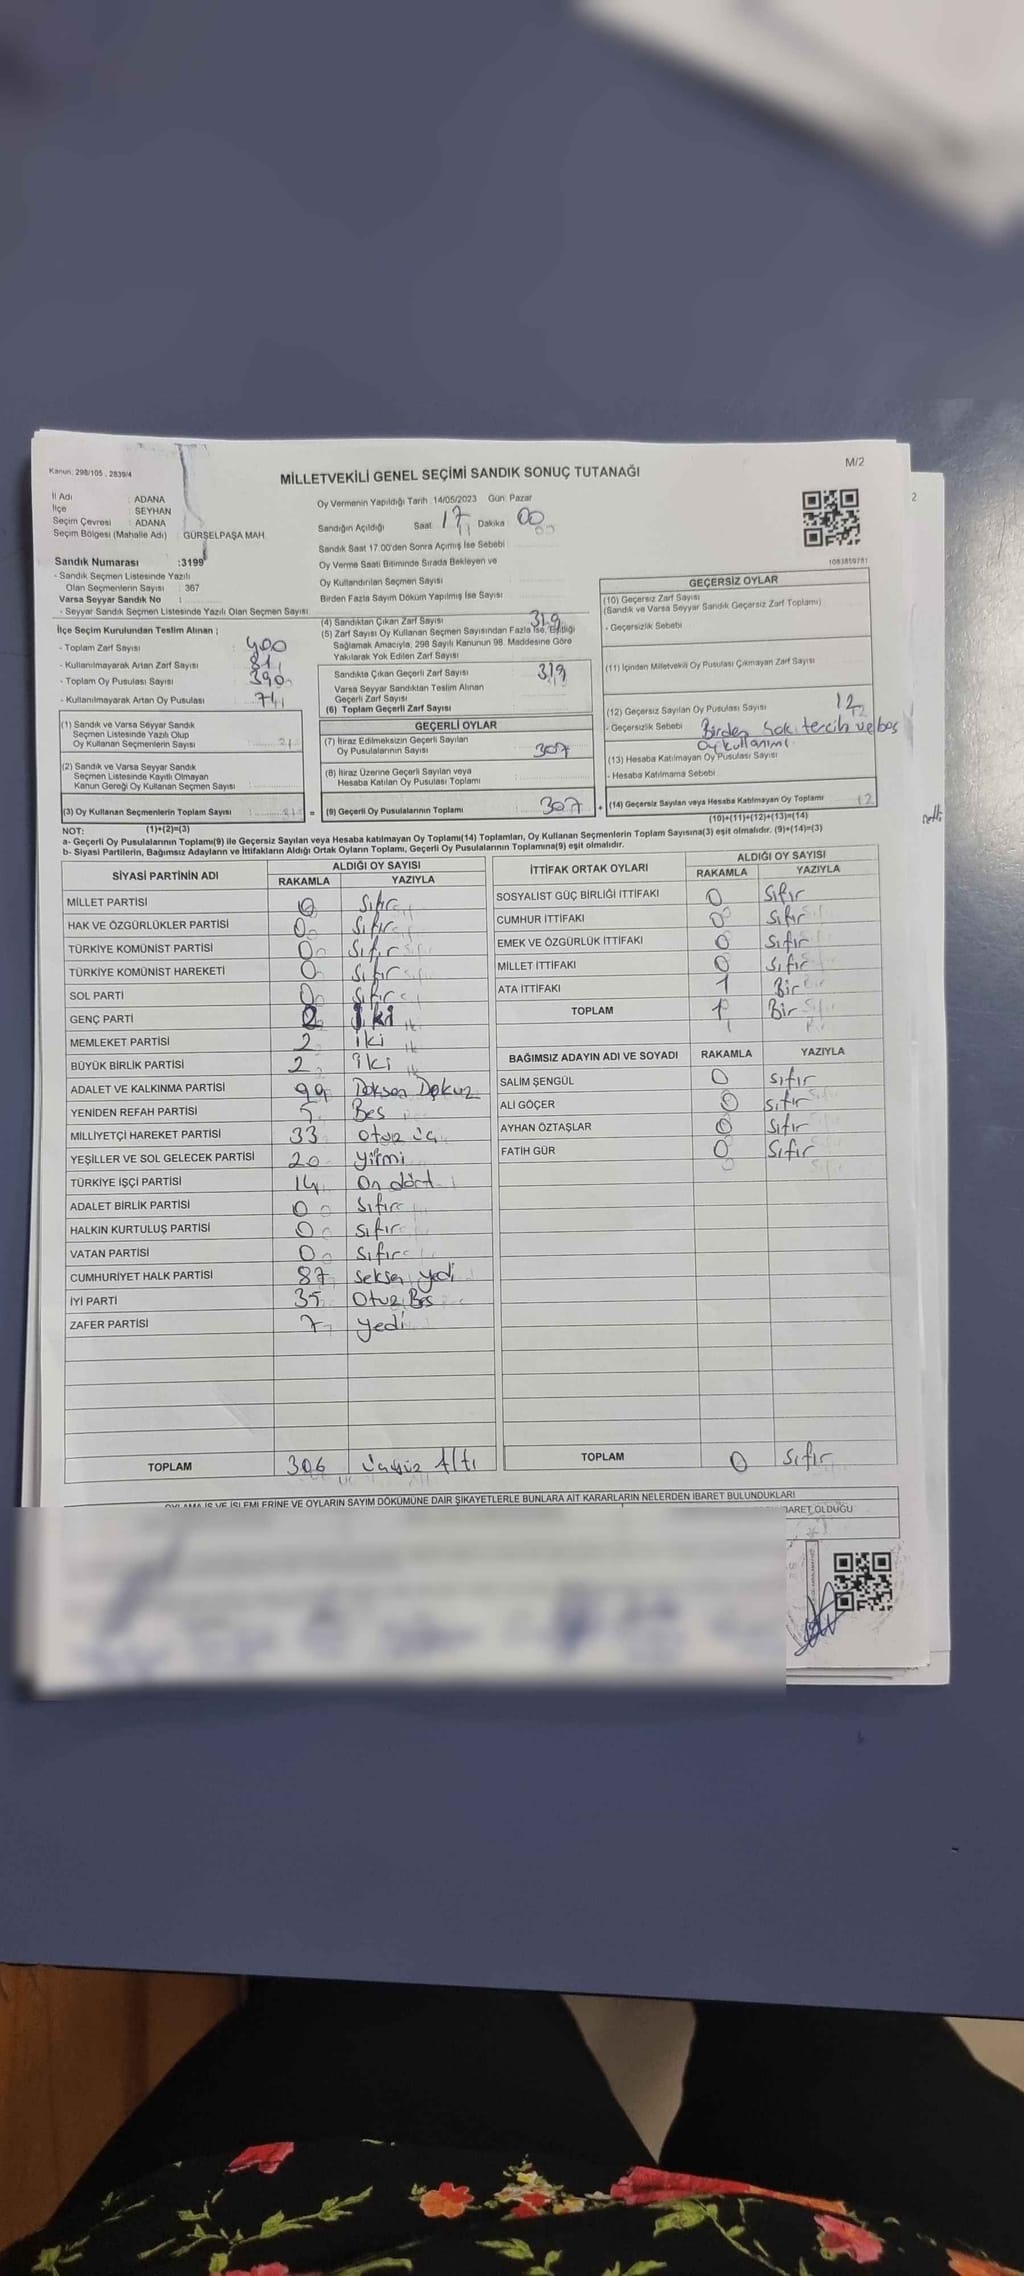 Kanun: 298/105 , 2839/4
MİLLETVEKİLİ GENEL SEÇİMİ SANDIK SONUÇ TUTANAĞI
M/2
2
İl Adı : ADANA
İlçe : SEYHAN
Seçim Çevresi : ADANA
Seçim Bölgesi (Mahalle Adı) : GÜRSELPAŞA MAH.
Oy Vermenin Yapıldığı Tarih :14/05/2023 Gün: Pazar
Sandığın Açıldığı Saat 17 Dakika 00
Sandık Saat 17.00'den Sonra Açımış İse Sebebi
Oy Verme Saati Bitiminde Sırada Bekleyen ve
Oy Kullandırılan Seçmen Sayısı
Birden Fazla Sayım Döküm Yapılmış İse Sayısı
Sandık Numarası :3199
- Sandık Seçmen Listesinde Yazılı
Olan Seçmenlerin Sayısı : 367
Varsa Seyyar Sandık No :
- Seyyar Sandık Seçmen Listesinde Yazılı Olan Seçmen Sayısı
İlçe Seçim Kurulundan Teslim Alınan ;
- Toplam Zarf Sayısı : 400
- Kullanılmayarak Artan Zarf Sayısı : 81
- Toplam Oy Pusulası Sayısı : 390
- Kullanılmayarak Artan Oy Pusulası : 71
(1) Sandık ve Varsa Seyyar Sandık
Seçmen Listesinde Yazılı Olup
Oy Kullanan Seçmenlerin Sayısı
(2) Sandık ve Varsa Seyyar Sandık
Seçmen Listesinde Kayıtlı Olmayan
Kanun Gereği Oy Kullanan Seçmen Sayısı
(3) Oy Kullanan Seçmenlerin Toplam Sayısı =
(4) Sandıktan Çıkan Zarf Sayısı 319
(5) Zarf Sayısı Oy Kullanan Seçmen Sayısından Fazla İse, Eşitliği
Sağlamak Amacıyla, 298 Sayılı Kanunun 98. Maddesine Göre
Yakılarak Yok Edilen Zarf Sayısı
Sandıkta Çıkan Geçerli Zarf Sayısı 319
Varsa Seyyar Sandıktan Teslim Alınan
Geçerli Zarf Sayısı
(6) Toplam Geçerli Zarf Sayısı
GEÇERLİ OYLAR
(7) İtiraz Edilmeksizin Geçerli Sayılan
Oy Pusulalarının Sayısı : 307
(8) İtiraz Üzerine Geçerli Sayılan veya
Hesaba Katılan Oy Pusulası Toplamı
(9) Geçerli Oy Pusulalarının Toplamı : 307 +
1083859781
GEÇERSİZ OYLAR
(10) Geçersiz Zarf Sayısı
(Sandık ve Varsa Seyyar Sandık Geçersiz Zarf Toplamı)
- Geçersizlik Sebebi
(11) İçinden Milletvekili Oy Pusulası Çıkmayan Zarf Sayısı
(12) Geçersiz Sayılan Oy Pusulası Sayısı 12
- Geçersizlik Sebebi Birden çok tercih ve boş
oy kullanımı
(13) Hesaba Katılmayan Oy Pusulası Sayısı
- Hesaba Katılmama Sebebi
(14) Geçersiz Sayılan veya Hesaba Katılmayan Oy Toplamı 12
(10)+(11)+(12)+(13)=(14)
NOT: (1)+(2)=(3)
a- Geçerli Oy Pusulalarının Toplamı(9) ile Geçersiz Sayılan veya Hesaba katılmayan Oy Toplamı(14) Toplamları, Oy Kullanan Seçmenlerin Toplam Sayısına(3) eşit olmalıdır. (9)+(14)=(3)
b- Siyasi Partilerin, Bağımsız Adayların ve İttifakların Aldığı Ortak Oyların Toplamı, Geçerli Oy Pusulalarının Toplamına(9) eşit olmalıdır.
SİYASİ PARTİNİN ADI ALDIĞI OY SAYISI
RAKAMLA YAZIYLA
MİLLET PARTİSİ 0 Sıfır
HAK VE ÖZGÜRLÜKLER PARTİSİ 0 Sıfır
TÜRKİYE KOMÜNİST PARTİSİ 0 Sıfır
TÜRKİYE KOMÜNİST HAREKETİ 0 Sıfır
SOL PARTİ 0 Sıfır
GENÇ PARTİ 2 İki
MEMLEKET PARTİSİ 2 İki
BÜYÜK BİRLİK PARTİSİ 2 İki
ADALET VE KALKINMA PARTİSİ 99 Doksan Dokuz
YENİDEN REFAH PARTİSİ 5 Beş
MİLLİYETÇİ HAREKET PARTİSİ 33 otuz üç
YEŞİLLER VE SOL GELECEK PARTİSİ 20 yirmi
TÜRKİYE İŞÇİ PARTİSİ 14 On dört
ADALET BİRLİK PARTİSİ 0 sıfır
HALKIN KURTULUŞ PARTİSİ 0 sıfır
VATAN PARTİSİ 0 sıfır
CUMHURİYET HALK PARTİSİ 87 seksen yedi
İYİ PARTİ 35 Otuz Beş
ZAFER PARTİSİ 7 yedi
TOPLAM 306 üçyüz Altı
İTTİFAK ORTAK OYLARI ALDIĞI OY SAYISI
RAKAMLA YAZIYLA
SOSYALİST GÜÇ BİRLİĞİ İTTİFAKI 0 Sıfır
CUMHUR İTTİFAKI 0 Sıfır
EMEK VE ÖZGÜRLÜK İTTİFAKI 0 Sıfır
MİLLET İTTİFAKI 0 Sıfır
ATA İTTİFAKI 1 Bir
TOPLAM 1 Bir
BAĞIMSIZ ADAYIN ADI VE SOYADI RAKAMLA YAZIYLA
SALİM ŞENGÜL 0 sıfır
ALİ GÖÇER 0 sıfır
AYHAN ÖZTAŞLAR 0 sıfır
FATİH GÜR 0 Sıfır
TOPLAM 0 Sıfır
OYLAMA İŞ VE İŞLEMLERİNE VE OYLARIN SAYIM DÖKÜMÜNE DAİR ŞİKAYETLERLE BUNLARA AİT KARARLARIN NELERDEN İBARET BULUNDUKLARI
İBARET OLDUĞU